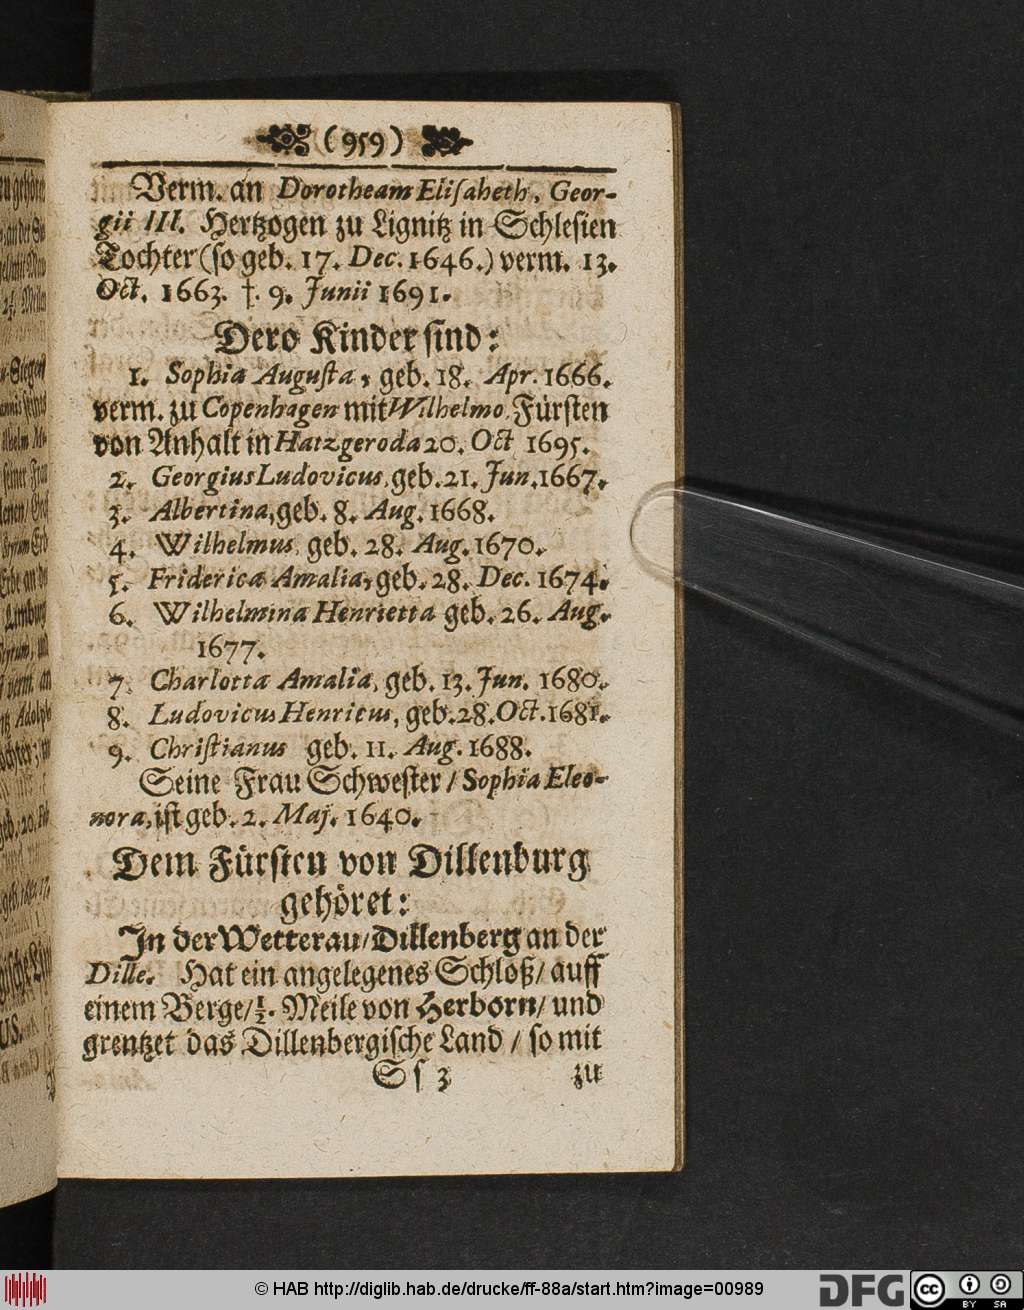 (959)
Verm. an Dorotheam Elisabeth, Geor-
gii III. Hertzogen zu Lignitz in Schlesien
Tochter (so geb. 17. Dec. 1646.) verm. 13.
Oct. 1663. †. 9. Junii 1691.
Dero Kinder sind:
1. Sophia Augusta, geb. 18. Apr. 1666.
verm. zu Copenhagen mit Wilhelmo, Fürsten
von Anhalt in Hatzgeroda 20. Oct 1695.
2. Georgius Ludovicus, geb. 21. Jun. 1667.
3. Albertina, geb. 8. Aug. 1668.
4. Wilhelmus, geb. 28. Aug. 1670.
5. Friderica Amalia, geb. 28. Dec. 1674.
6. Wilhelmina Henrietta geb. 26. Aug.
1677.
7. Charlotta Amalia, geb. 13. Jun. 1680.
8. Ludovicus Henricus, geb. 28. Oct. 1681.
9. Christianus geb. 11. Aug. 1688.
Seine Frau Schwester / Sophia Eleo-
nora, ist geb. 2. Maj. 1640.
Dem Fürsten von Dillenburg
gehöret:
In der Wetterau / Dillenberg an der
Dille. Hat ein angelegenes Schloß / auff
einem Berge / ½. Meile von Herborn / und
grentzet das Dillenbergische Land / so mit
S s 3 zu
© HAB http://diglib.hab.de/drucke/ff-88a/start.htm?image=00989
DFG
cc BY SA